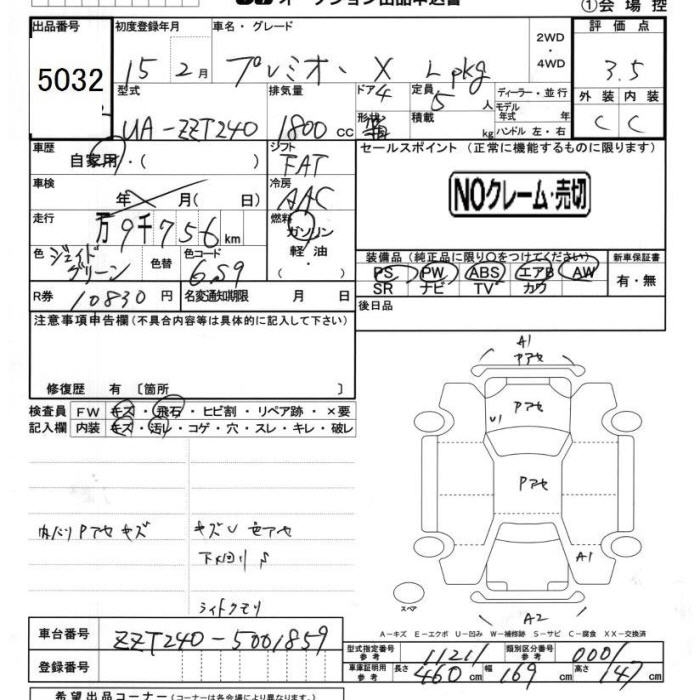 オークション出品申込書
①会場控
出品番号 初度登録年月 車名・グレード 2WD ・ 4WD 評価点
5032 15 2月 プレミオ、X Lpkg 3.5
型式 排気量 ドア 定員 ディーラー・並行 外装 内装
UA-ZZT240 1800cc 4 5人 モデル年式 年 C C
形状 積載 kg ハンドル 左・右
車歴 シフト セールスポイント (正常に機能するものに限ります)
自家用・( ) FAT
車検 冷房 NOクレーム・売切
年 月( 日) AAC
走行 燃料
万9千756km ガソリン・軽油・
色 色替 色コード 装備品 (純正品に限り○をつけてください) 新車保証書
ジェイドグリーン 6S9 PS PW ABS エアB AW 有・無
SR ナビ TV カワ
R券 10830円 名変通知期限 月 日 後日品
注意事項申告欄 (不具合内容等は具体的に記入して下さい)
修復歴 有 〔箇所 〕
検査員 FW キズ・飛石・ヒビ割・リペア跡・×要
記入欄 内装 キズ・汚レ・コゲ・穴・スレ・キレ・破レ
A1
Pアセ
Pアセ
U1
Pアセ
A1
A2
スペア
内ハリPアセ キズ キズU 色アセ
下メ回リ S
ライトクモリ
A-キズ E-エクボ U-凹み W-補修跡 S-サビ C-腐食 XX-交換済
車台番号 ZZT240-5001859
登録番号
型式指定番号 参考 11211 類別区分番号 参考 0001
車庫証明用 参考 長さ 460cm 幅 169cm 高さ 147cm
希望出品コーナー (コーナーは各会場により異なります)